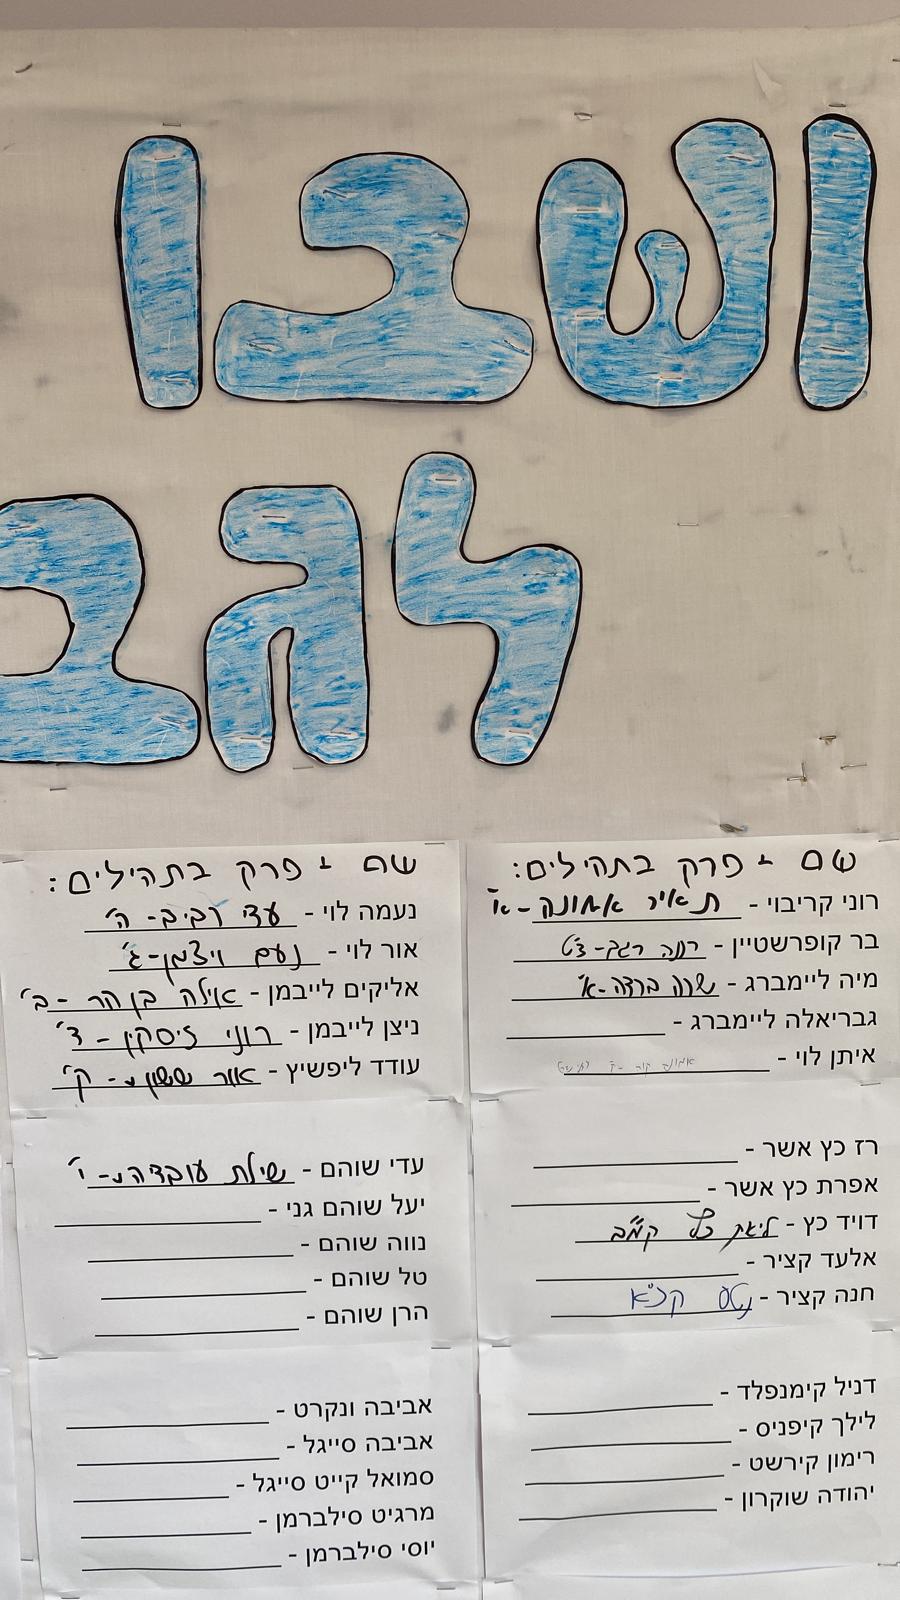 ושבו
לגב
שם + פרק בתהילים:
רוני קריבוי - תאיר אמונה - א'
בר קופרשטיין - רונה רגב - צ"ט
מיה ליימברג - שרה ברדה - א'
גבריאלה ליימברג -
איתן לוי -
רז כץ אשר -
אפרת כץ אשר -
דויד כץ - ליאת כץ קמ"ב
אלעד קציר -
חנה קציר - נטע קכ"א
דניל קימנפלד -
לילך קיפניס -
רימון קירשט -
יהודה שוקרון -
שם + פרק בתהילים:
נעמה לוי - עדי רביב - ה'
אור לוי - נעם ויצמן - ג'
אליקים לייבמן - אילה בן הר - ב'
ניצן לייבמן - רוני זיסקין - ד'
עודד ליפשיץ - אור ששון - ק'
עדי שוהם - שילת עובדיה - י'
יעל שוהם גני -
נווה שוהם -
טל שוהם -
הרן שוהם -
אביבה ונקרט -
אביבה סייגל -
סמואל קייט סייגל -
מרגיט סילברמן -
יוסי סילברמן -